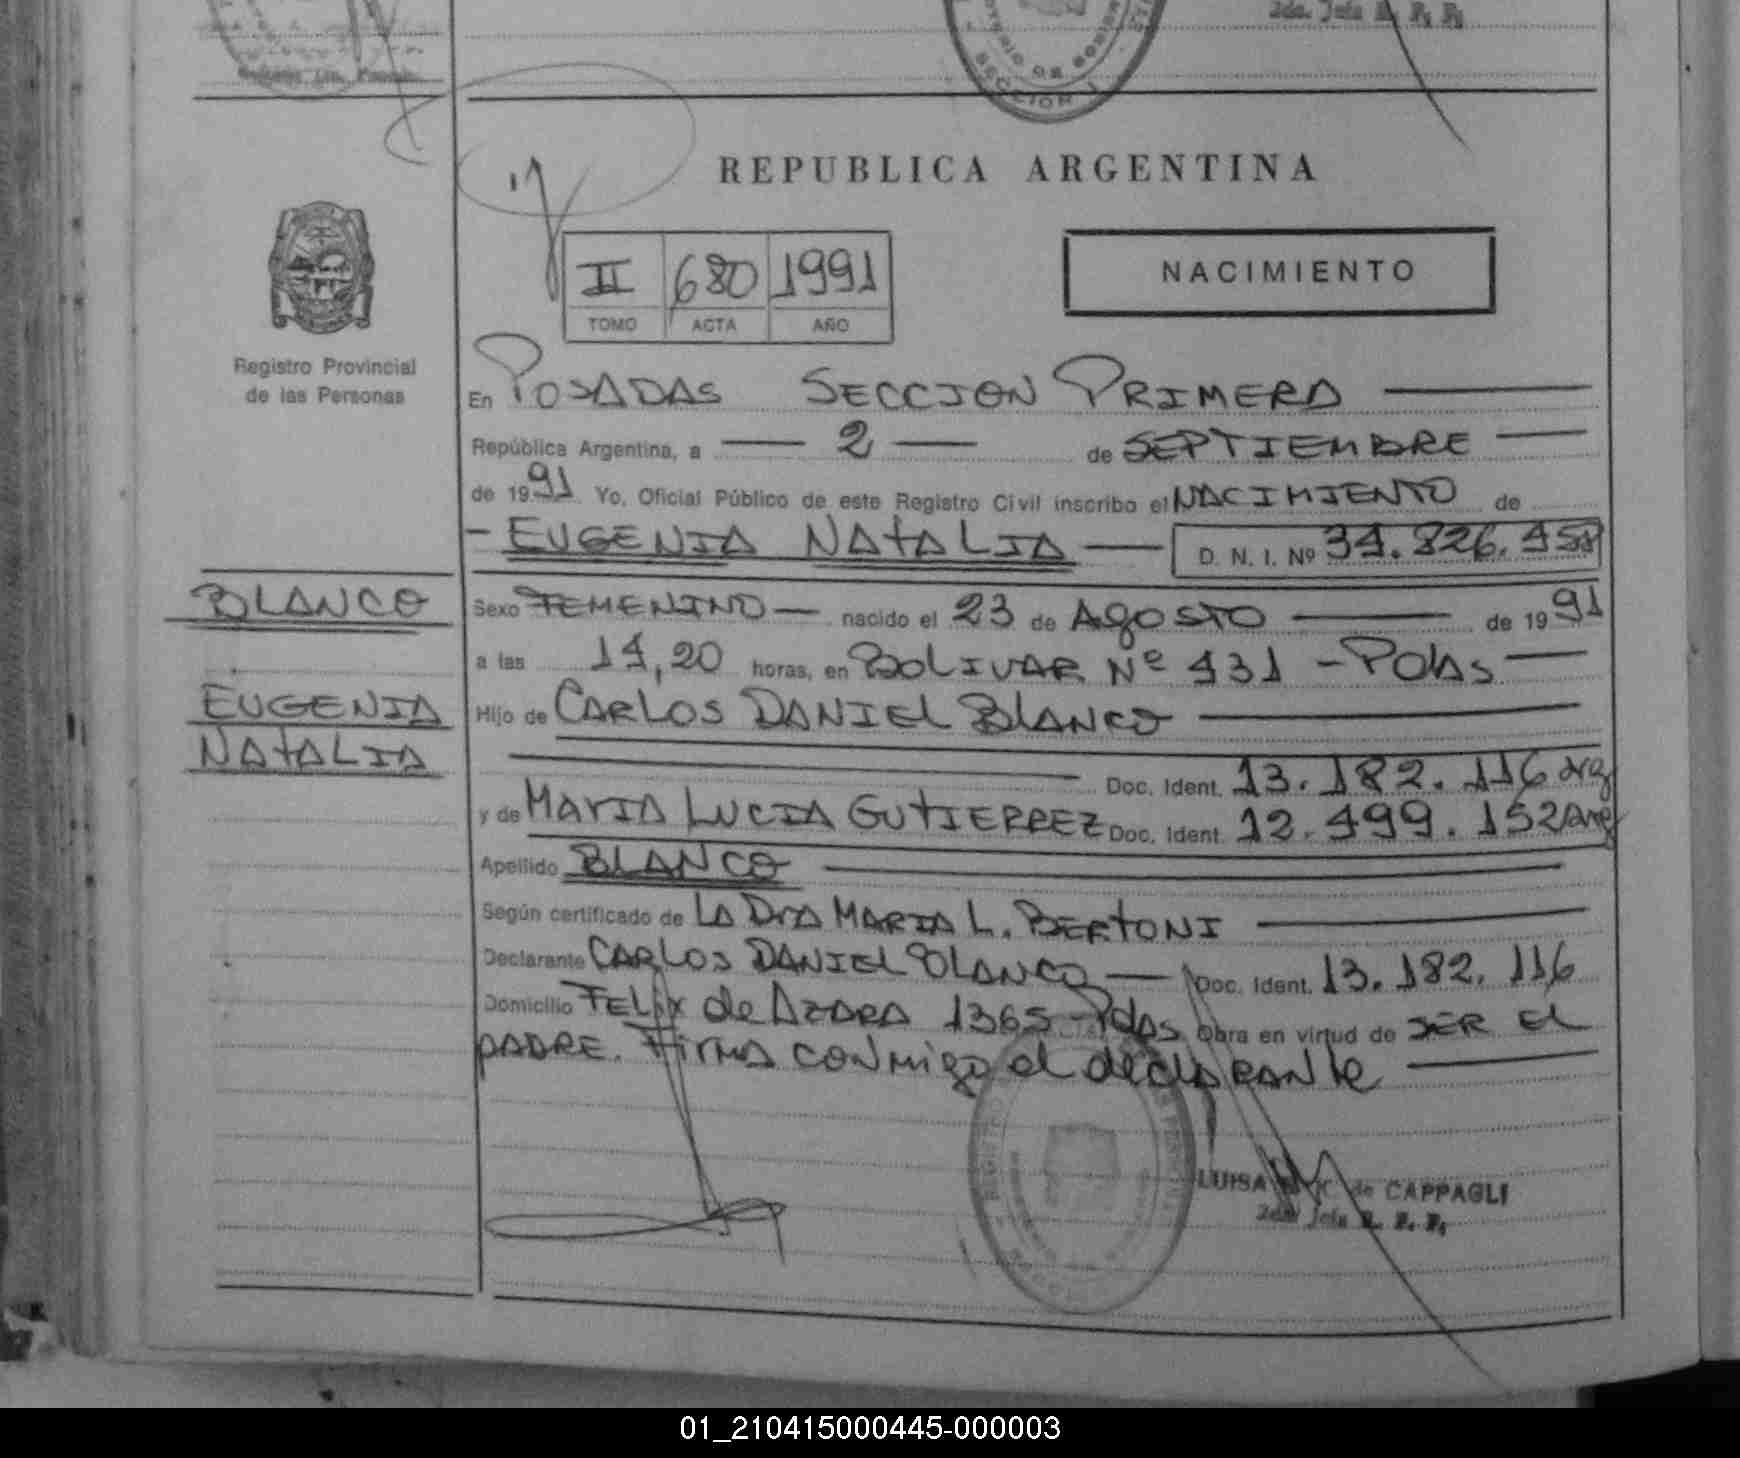 2do. Jefe R. P. P.
SECCION 1
REPUBLICA ARGENTINA
II 680 1991
TOMO ACTA AÑO
NACIMIENTO
Registro Provincial
de las Personas
En POSADAS SECCION PRIMERA
República Argentina, a 2 de SEPTIEMBRE
de 1991 Yo, Oficial Público de este Registro Civil inscribo el NACIMIENTO de
EUGENIA NATALIA D. N. I. Nº 34.826.458
BLANCO
EUGENIA
NATALIA
Sexo FEMENINO nacido el 23 de AgOSTO de 1991
a las 14,20 horas, en BOLIVAR Nº 431 - Pdas
Hijo de CARLOS DANIEL BLANCO
Doc. Ident. 13.182.116 arg
y de MARIA LUCIA GUTIERREZ Doc. Ident. 12.499.152 arg
Apellido BLANCO
Según certificado de LA Dra MARIA L. BERTONI
Declarante CARLOS DANIEL BLANCO Doc. Ident. 13.182.116
Domicilio FELIX de AZARA 1365 - Pdas Obra en virtud de SER El
PADRE. Firma conmigo el declarante
LUISA C. de CAPPAGLI
2do Jefe R. P. P.
01_210415000445-000003